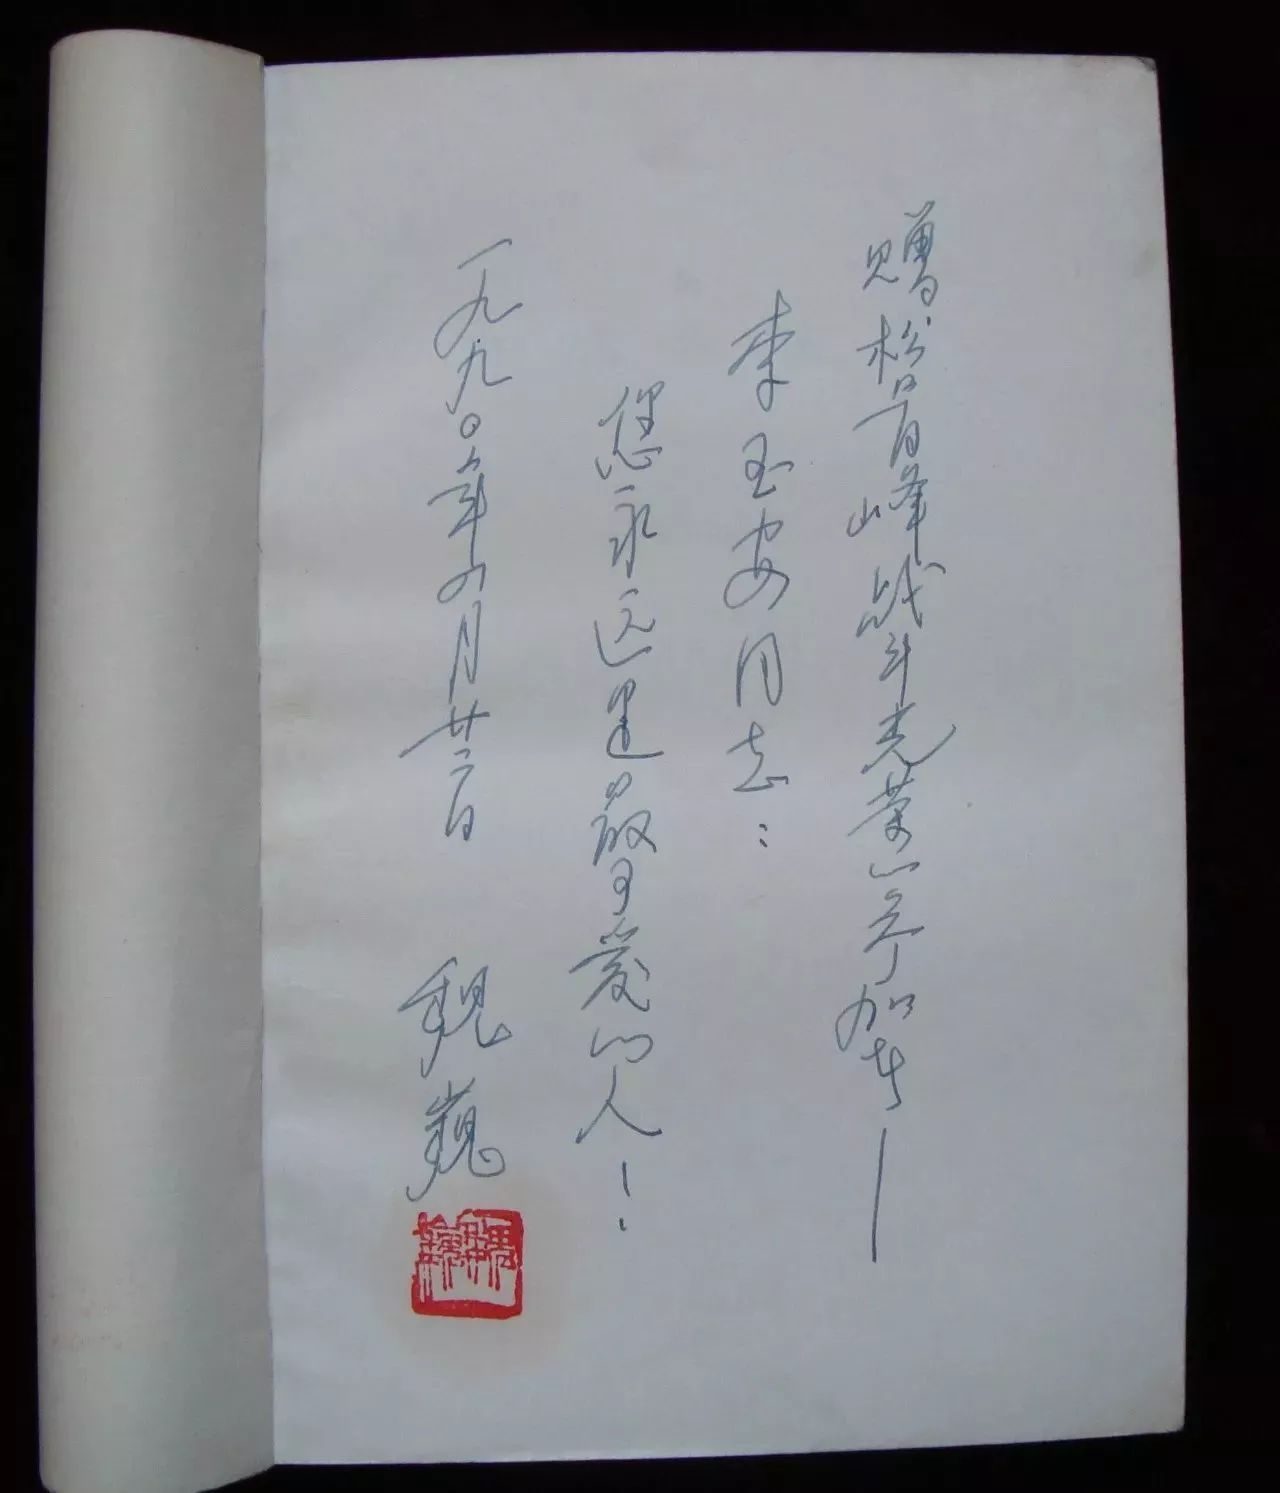 赠松骨峰战斗光荣的参加者—
李玉安同志：
您永远是最可爱的人！
一九九〇年四月廿二日 魏巍
魏巍